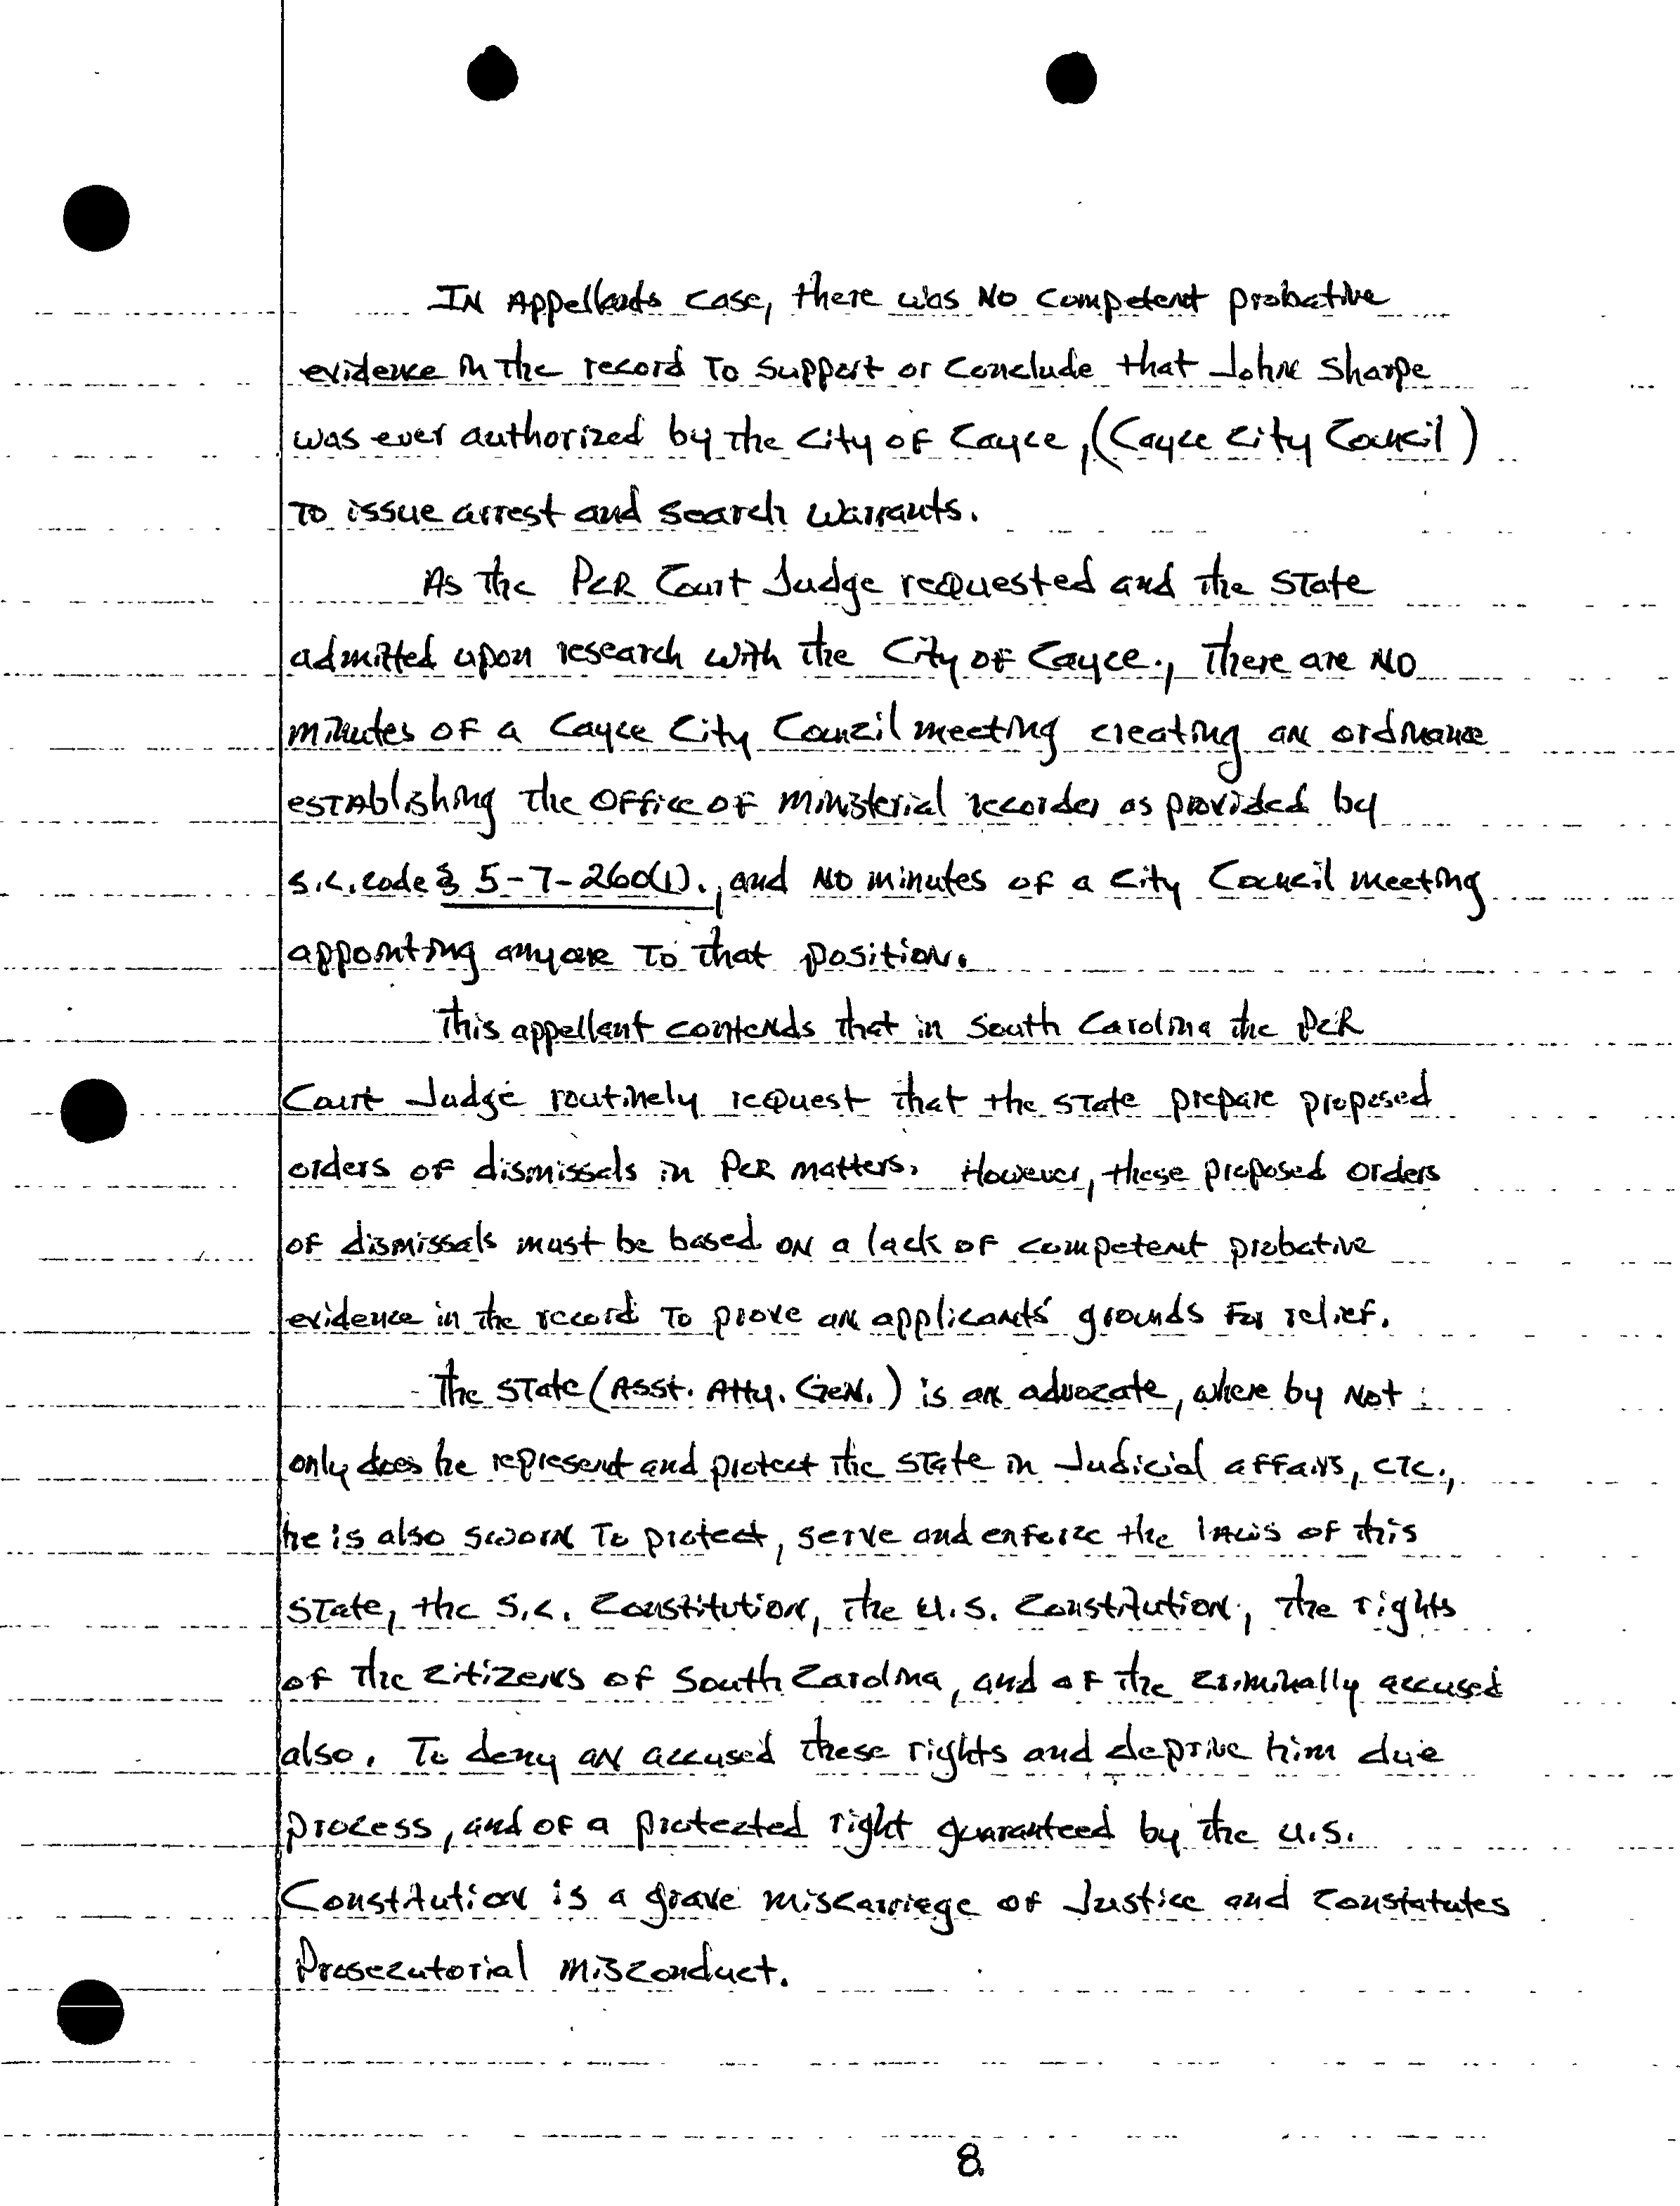 In Appellants case, there was no competent probative
evidence in the record to support or conclude that John Sharpe
was ever authorized by the City of Cayce, (Cayce City Council)
to issue arrest and search warrants.
As the PCR Court Judge requested and the State
admitted upon research with the City of Cayce., There are no
minutes of a Cayce City Council meeting creating an ordinance
establishing the office of ministerial recorder as provided by
S.C. code § 5-7-260(1)., and no minutes of a City Council meeting
appointing anyone to that position.
This appellant contends that in South Carolina the PCR
Court Judge routinely request that the State prepare proposed
orders of dismissals in PCR matters. However, these proposed orders
of dismissals must be based on a lack of competent probative
evidence in the record to prove an applicants' grounds for relief.
The State (Asst. Atty. Gen.) is an advocate, where by not
only does he represent and protect the State in Judicial affairs, etc.,
he is also sworn to protect, serve and enforce the laws of this
State, the S.C. Constitution, the U.S. Constitution, the rights
of the citizens of South Carolina, and of the criminally accused
also. To deny an accused these rights and deprive him due
process, and of a protected right guaranteed by the U.S.
Constitution is a grave miscarriege of Justice and constatutes
Prosecutorial misconduct.
8.